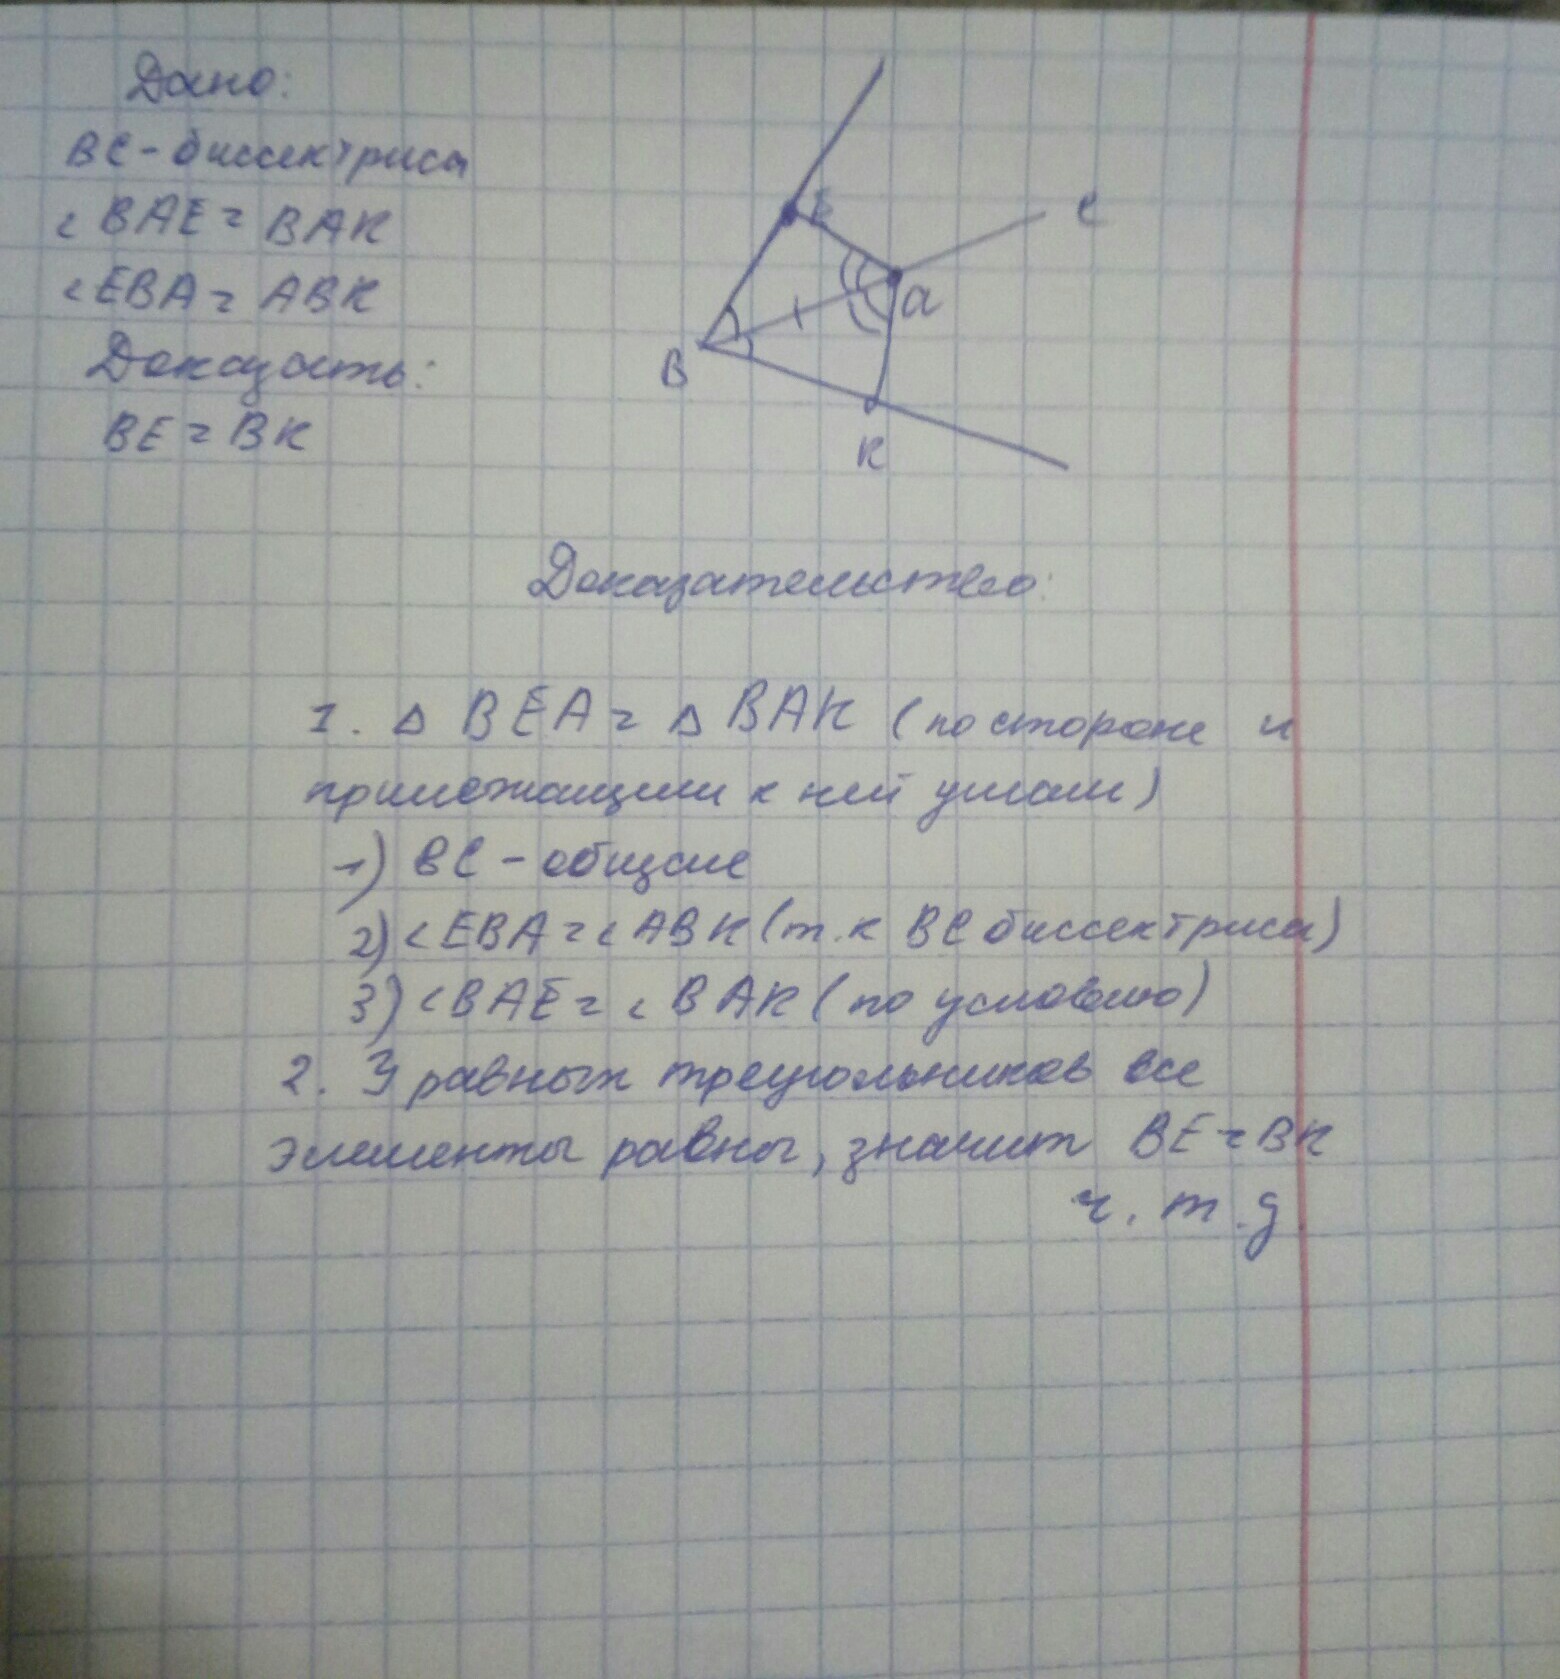 Дано:
BC - биссектриса
< BAE = BAK
< EBA = ABK
Доказать:
BE = BK
E
C
a
B
K
Доказательство:
1. Δ BEA = Δ BAK (по стороне и
прилежащим к ней углам)
1) BC - общая
2) < EBA = < ABK (т.к BC биссектриса)
3) < BAE = < BAK (по условию)
2. У равных треугольников все
элементы равны, значит BE = BK
ч. т. д